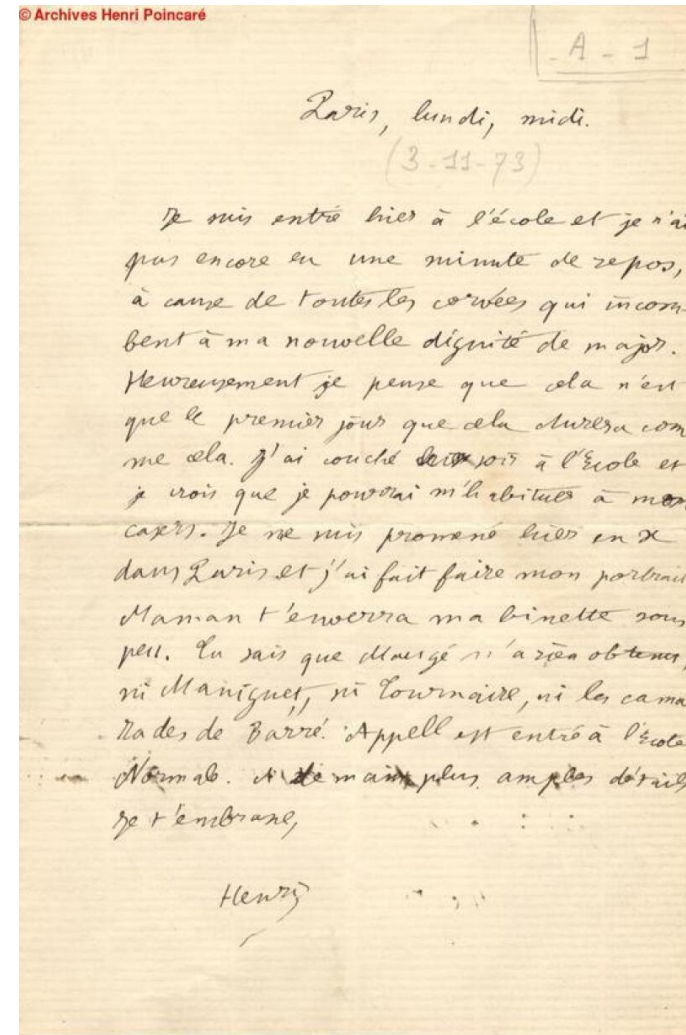 © Archives Henri Poincaré
A - 1
Paris, lundi, midi.
(3-11-73)
Je suis entré hier à l'école et je n'ai
pas encore eu une minute de repos,
à cause de toutes les corvées qui incom-
bent à ma nouvelle dignité de major.
Heureusement je pense que cela n'est
que le premier jour que cela durera com
me cela. J'ai couché soir à l'École et
je crois que je pourrai m'habituer à mon
casers. Je me suis promené hier en X
dans Paris et j'ai fait faire mon portrait
Maman t'enverra ma binette sous
peu. Tu sais que n'a rien obtenu,
ni Maniguet, ni Tournaire, ni les cama
rades de Barré. Appell est entré à l'École
Normale. A demain plus amples détails
Je t'embrasse,
Henri